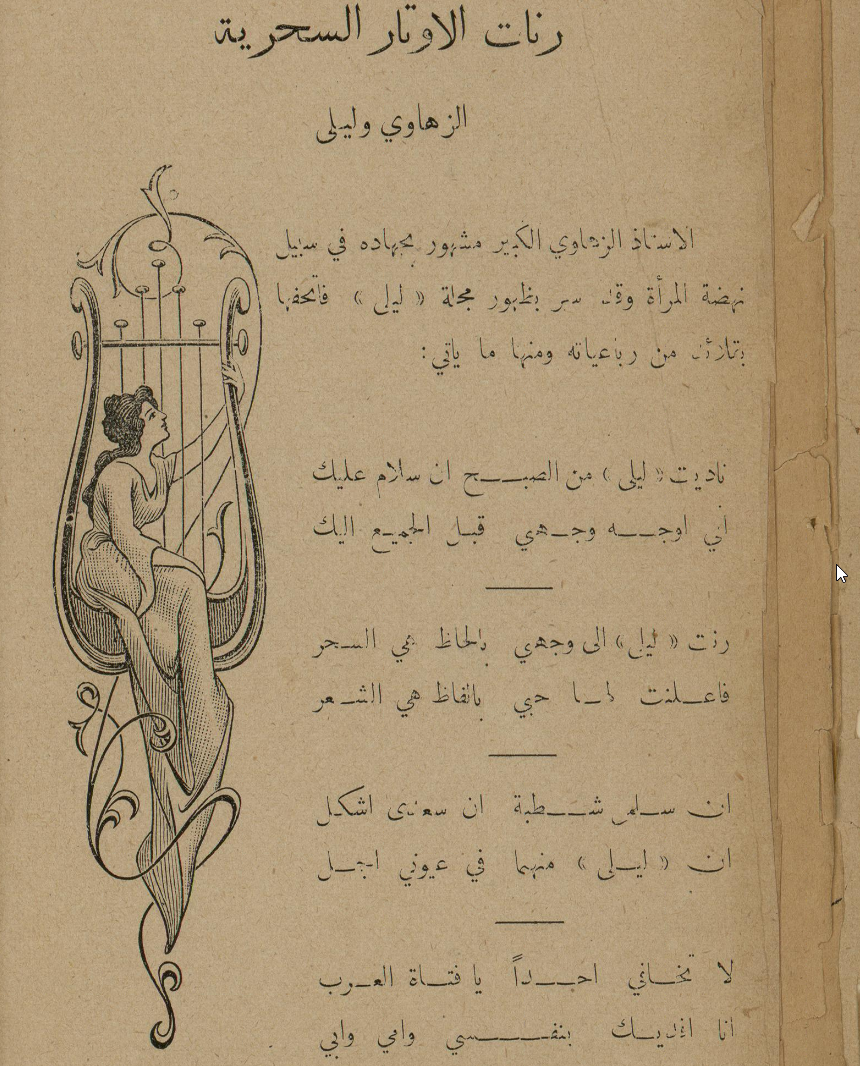 رنات الاوتار السحرية
الزهاوي وليلى
الاستاذ الزهاوي الكبير مشهور بجهاده في سبيل
نهضة المرأة وقد سر بظهور مجلة « ليلى » فاتحفها
بثلاث من رباعياته ومنها ما ياتي :
ناديت « ليلى » من الصبـح ان سلام عليك
اني اوجـه وجـهي قبـل الجميـع اليك
رنت « ليلى » الى وجهي بالحاظ هي السحر
فاعـلنت لهـا حبي بالفاظ هي الشـعر
ان سـلمى شـطبة ان سعدى اشكل
ان « ليـلى » منهما في عيوني اجمـل
لا تخـافي احـداً يا فتـاة العـرب
انا افديـك بنفـسي وامي وابي